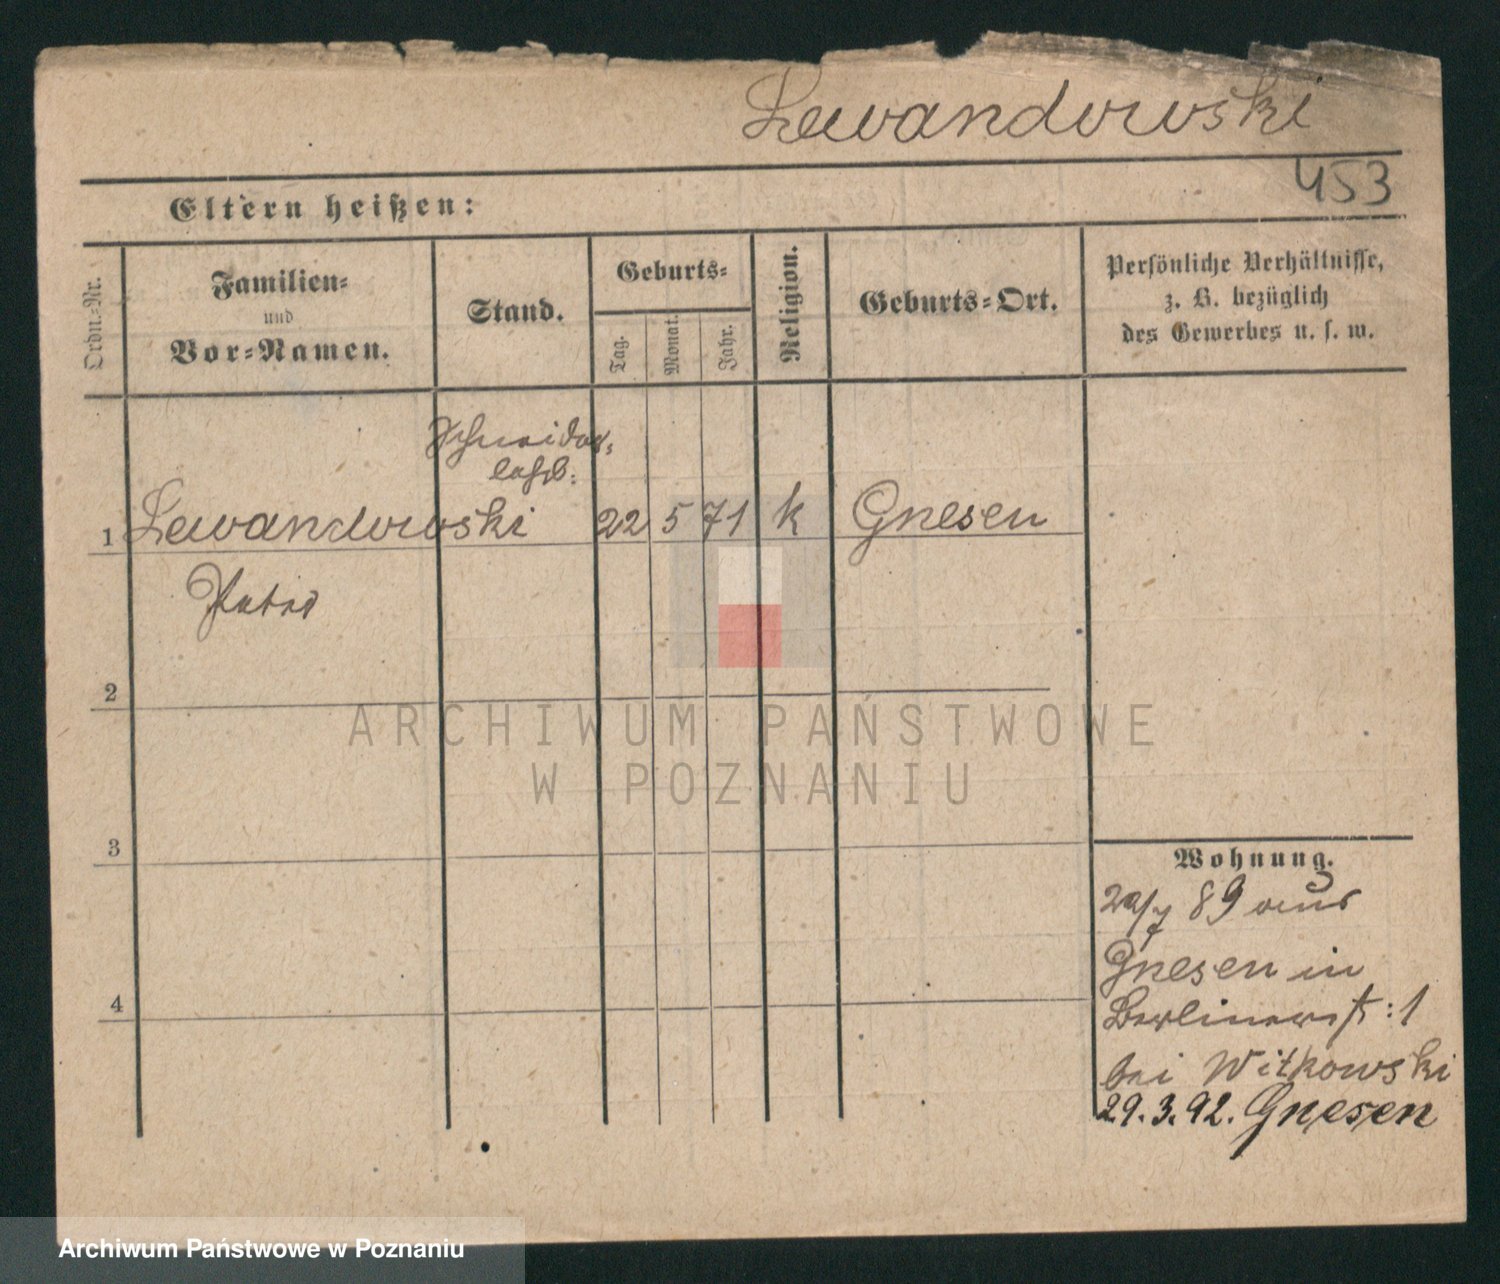 Lewandowski
453
Eltern heißen:
Ordn.-Nr.
Familien-
und
Vor-Namen.
Stand.
Geburts-
Tag.
Monat.
Jahr.
Religion.
Geburts-Ort.
Persönliche Verhältnisse,
z. B. bezüglich
des Gewerbes u. s. w.
Schneider,
lehrb.
1 Lewandowski 22 5 71 k Gnesen
Peter
2
3
4
Wohnung.
89 aus
Gnesen in
Berlinerst: 1
bei Witkowski
29.3.92. Gnesen
ARCHIWUM PAŃSTWOWE
W POZNANIU
Archiwum Państwowe w Poznaniu